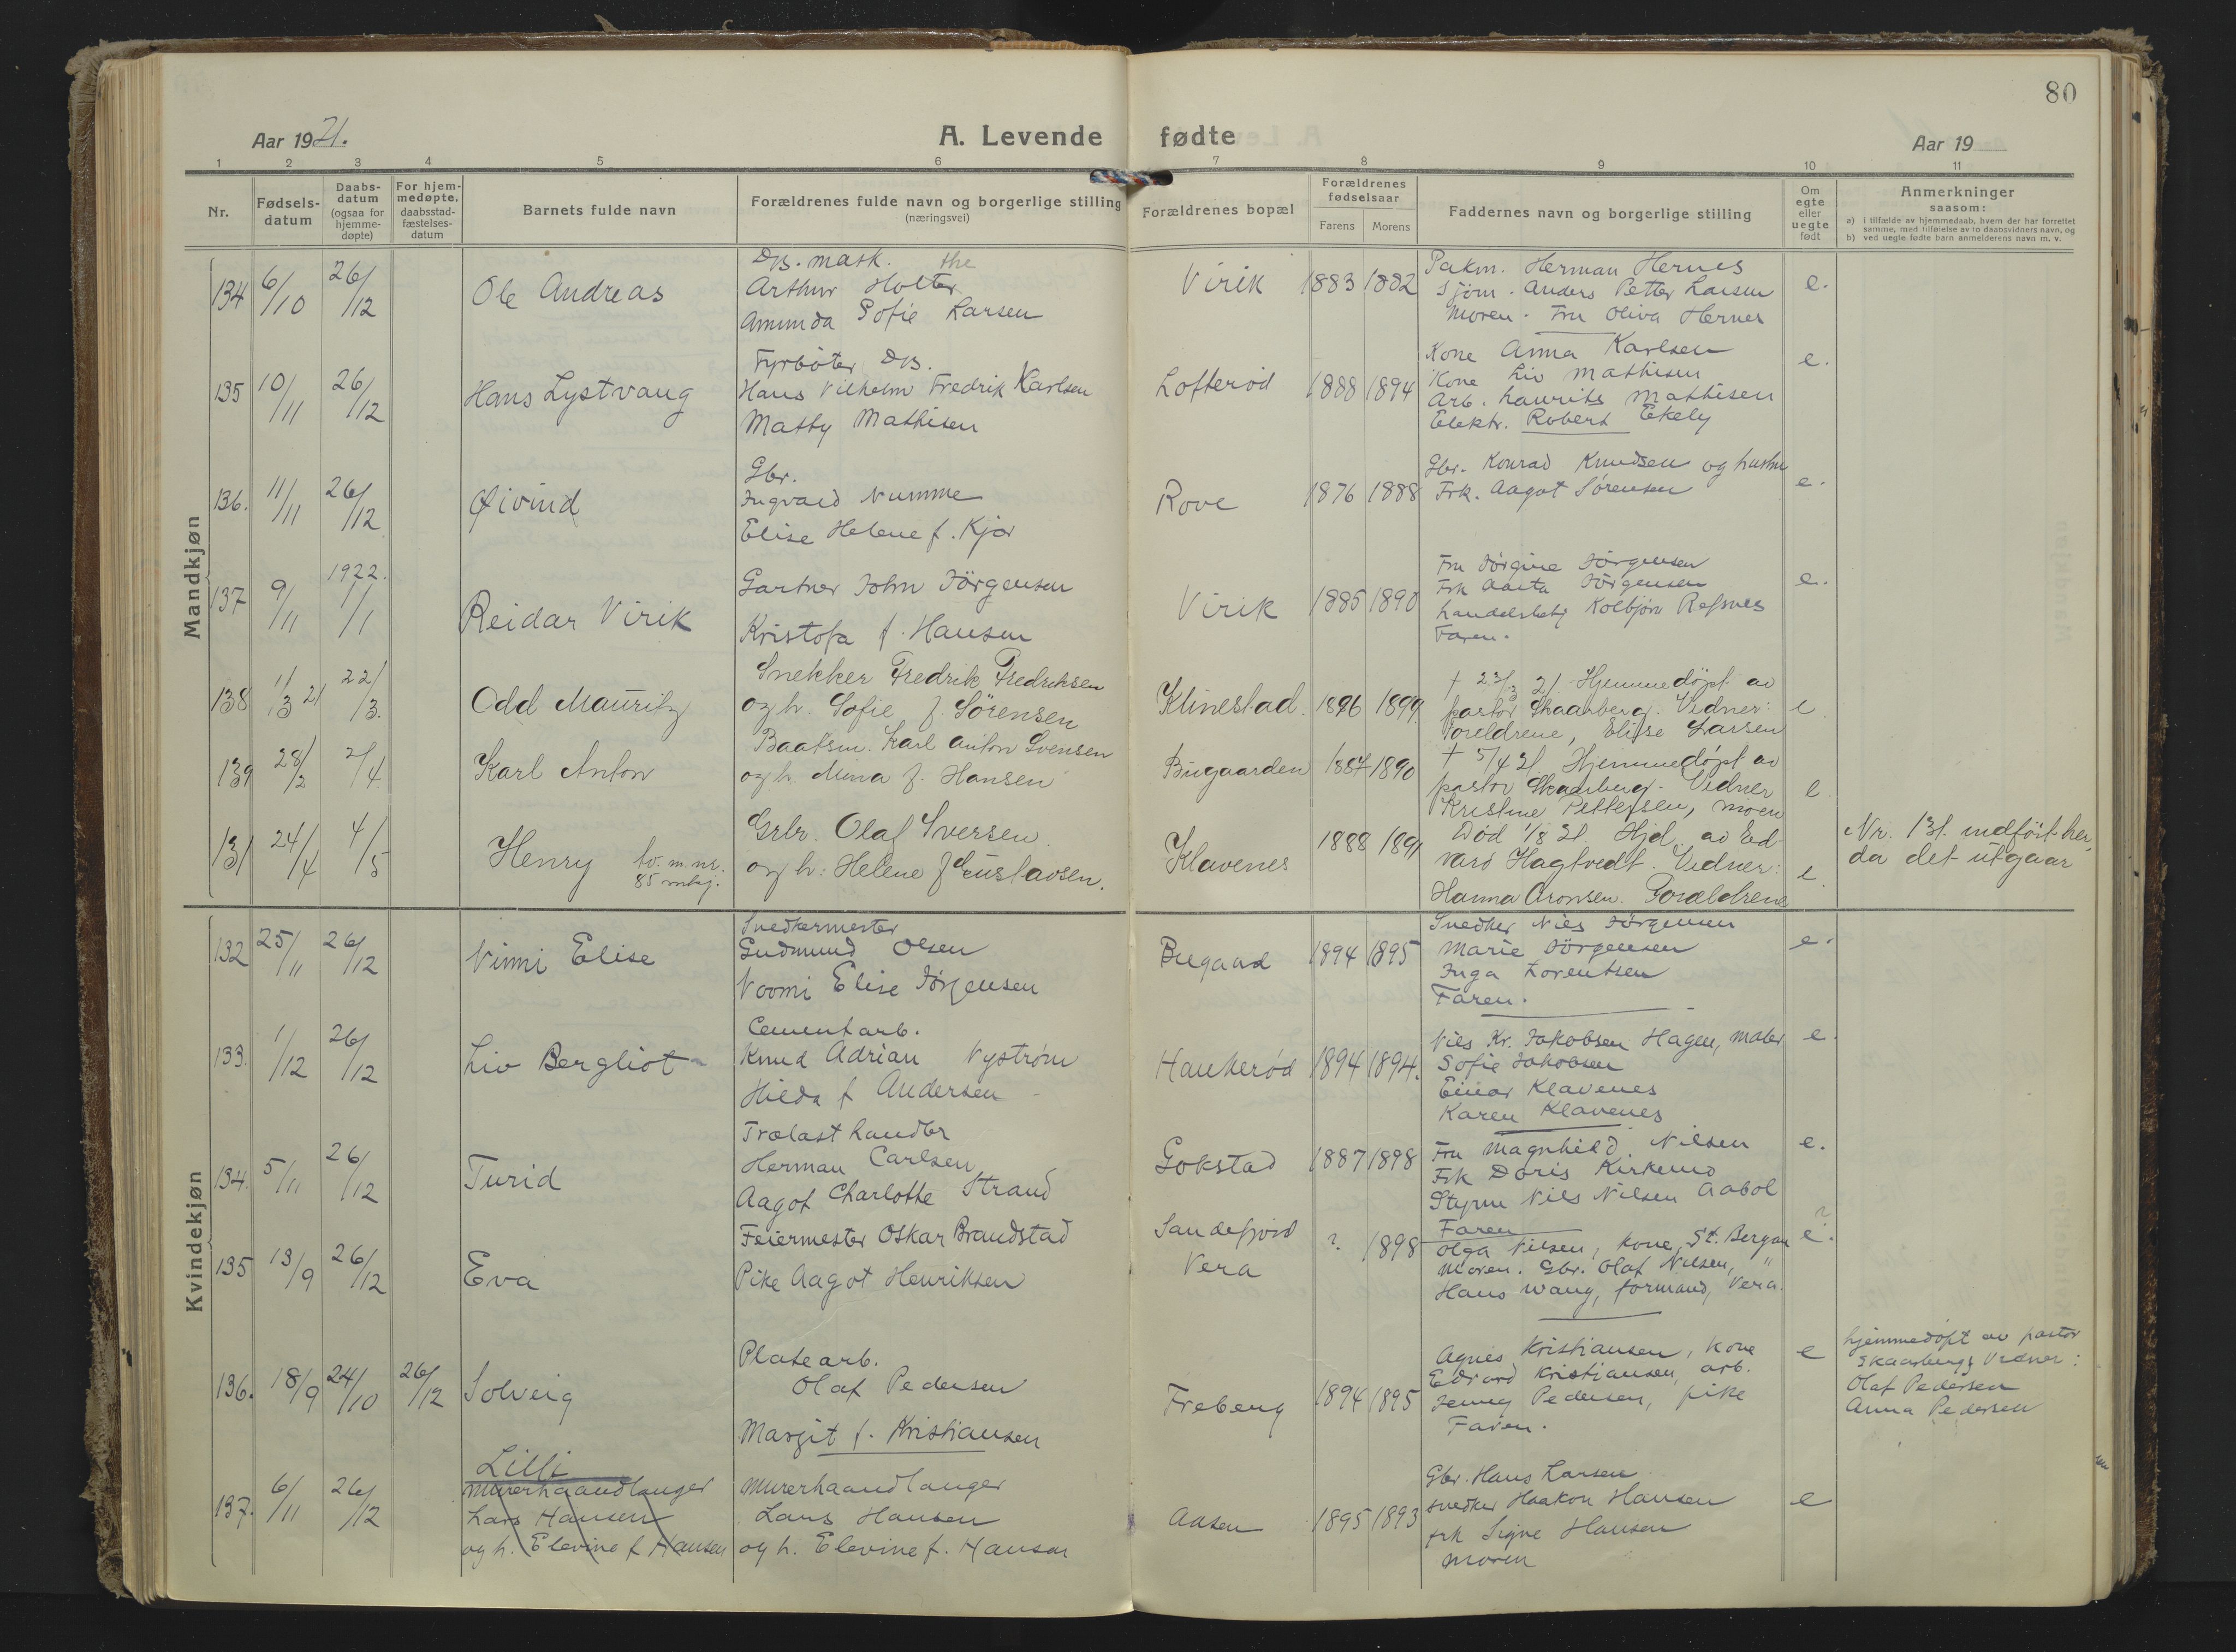 80
Aar 1921.
A. Levende fødte
Aar 19
1 2 3 4 5 6 7 8 9 10 11
Nr.
Fødsels-
datum
Daabs-
datum
(ogsaa for
hjemme-
døpte)
For hjem-
medøpte.
daabsstad-
fæstelses-
datum
Barnets fulde navn
Forældrenes fulde navn og borgerlige stilling
(næringsvei)
Forældrenes bopæl
Forældrenes
fødselsaar
Farens Morens
Faddernes navn og borgerlige stilling
Om
egte
eller
uegte
født
Anmerkninger
saasom:
a) i tilfælde av hjemmedaab, hvem der har forrettet
samme, med tilføielse av to daabsvidners navn, og
b) ved uegte fødte barn anmelderens navn m. v.
Mandkjøn
134 6/10 26/12 Ole Andreas
DB. mask.
Arthur Holter
Amunda Sofie Larsen
Virik 1883 1882
Pakm. Herman Hernes
Sjøm. Anders Petter Larsen
Moren. Fru Oliva Hernes
e.
135 10/11 26/12 Hans Lystvaug
Fyrbøter DB.
Hans Vilhelm Fredrik Karlsen
Matty Mathisen
Lofterød 1888 1894
Kone Anna Karlsen
Kone Liv Mathisen
Arb. Laurits Mathisen
Elektr. Robert Ekely
e.
136. 11/11 26/12 Øivind
Gbr.
Ingvald Numme
Elise Helene f. Kjær
Rove 1876 1888
Gbr. Konrad Knudsen og hustru
Frk. Aagot Sørensen
e.
137 9/11 1922. 1/1 Reidar Virik
Gartner John Jörgensen
Kristofa f. Hansen
Virik 1885 1890
Fru Jörgine Jörgensen
Frk Jörgensen
Kolbjørn Refsnes
Faren.
e.
138 1/3 21 22/3. Odd Mauritz
Snekker Fredrik Fredriksen
og h. Sofie f. Sörensen
Klinestad. 1896 1899
† 23/3 21. Hjemmedöpt av
pastor Skaarberg. Vidner:
Foreldrene, Elise Larsen
e
139 28/2 2/4. Karl Anton
Baatsm. Karl Anton Svensen
og h. Mina f. Hansen
Bugaarden 1887 1890
† 5/4 21. Hjemmedöpt av
pastor Skaarberg. Vidner
Kristine Pettersen, moren
e
131 24/4 4/5 Henry tv. m. nr.
85 mkj.
Grbr. Olaf Iversen
og h: Helene f Gustavsen.
Klavenes 1888 1891
Död 1/8 21. Hjd. av Ed-
vard Hagtvedt. Vidner:
Hanna Aronsen. Foreldrene
e.
Nr. 131. indfört her,
da det utgaar
Kvindekjøn
132 25/11 26/12 Vinni Elise
Snedkermester
Gudmund Olsen
Noomi Elise Jörgensen
Bugaard 1894 1895
Snedker Nils Jörgensen
Marie Jörgensen
Inga Lorentsen
Faren.
e.
133. 1/12 26/12 Liv Bergliot
Cementarb.
Knud Adrian Nyström
Hilda f Andersen
Haukerød 1894 1894.
Nils Kr. Jakobsen Hagen, maler
Sofie Jakobsen
Einar Klavenes
Karen Klavenes
e.
134. 5/11 26/12 Turid
Trælasthandler
Herman Carlsen
Aagot Charlotte Strand
Gokstad 1887 1898
Fru Magnhild Nilsen
Frk Doris Kirkemo
Styrm Nils Nilsen Aabol
Faren
e.
135 13/9 26/12 Eva
Feiermester Oskar Brandstad
Pike Aagot Henriksen
Sandefjord
Vera
? 1898
Olga Nilsen, kone, St. Bergan
Moren. Gbr. Olaf Nilsen, "
Hans Wang, formand, Vera.
?
e.
136. 18/9 24/10 26/12 Solveig
Platearb.
Olaf Pedersen
Margit f. Kristiansen
Freberg 1894 1895
Agnes Kristiansen, kone
Edvard Kristiansen, arb.
Jenny Pedersen, pike
Faren.
e
hjemmedøpt av pastor
Skaarberg Vidner:
Olaf Pedersen
Anna Pedersen
137. 6/11 26/12 Lilli
Murerhaandlanger
Lars Hansen
og h. Elevine f Hansen
Murerhaandlanger
Lars Hansen
og h. Elevine f. Hansen
Aasen 1895 1893
Gbr. Hans Larsen
Snedker Haakon Hansen
frk Signe Hansen
Moren
e